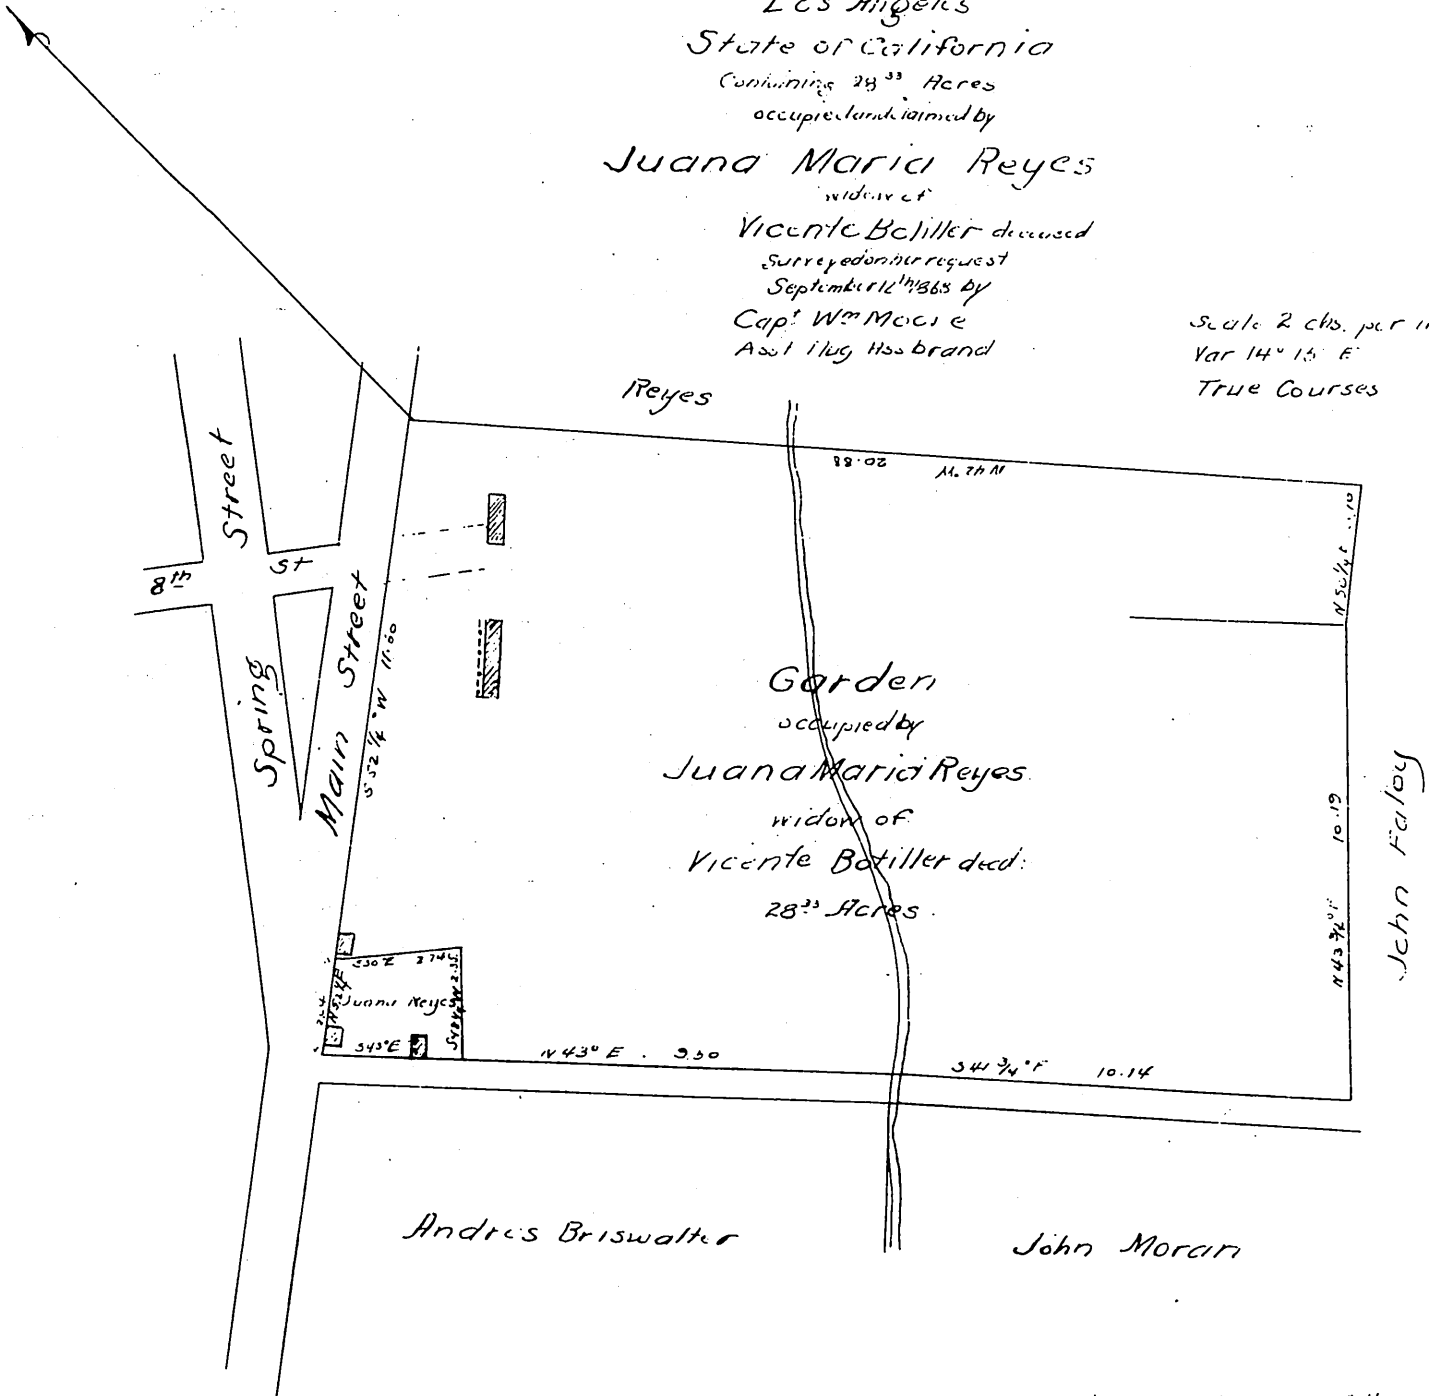 Los Angeles
State of California
Containing 28³³ Acres
occupied and claimed by
Juana Maria Reyes
widow of
Vicente Botiller deceased
Surveyed on her request
September by
Capt Wm Moore
Asst
Scale 2 chs. per
Var 14° 15 E
True Courses
Reyes
20.88
N 42°W
Street
8th
St
Main Street
S 52 1/4°W 11.00
Spring
Garden
occupied by
Juana Maria Reyes
widow of
Vicente Botiller decd:
28³³ Acres.
N 43 3/4° E 10.19
John Faloy
S 50 E 2.74
Juana Reyes
S 43°E
N 43° E . 9.50
S 41 3/4° E 10.14
Andres Briswalter
John Moran